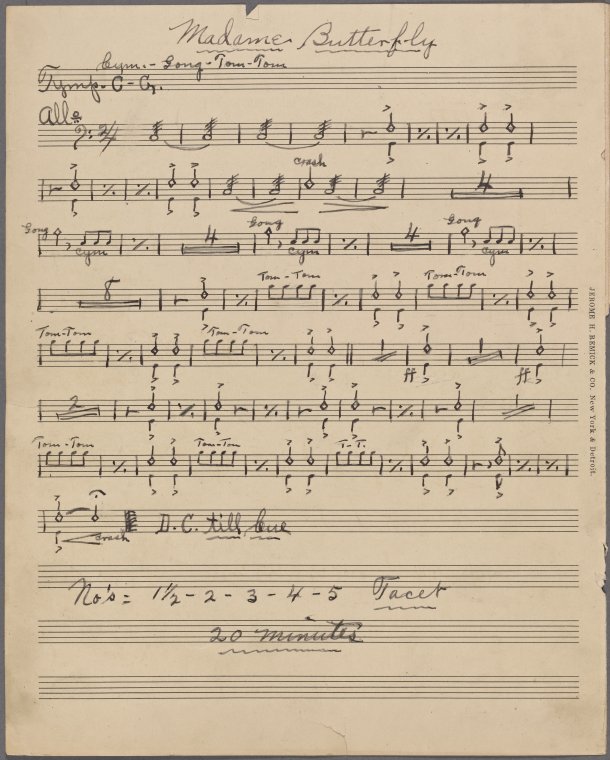 Madame Butterfly
Cym. - Gong - Tom-Tom
Tymp. C - G.
Allo
2/4
crash
4
Gong Cym 4 Gong Cym 4 Gong Cym
8 Tom-Tom Tom-Tom
Tom-Tom Tom-Tom ff ff
2
Tom-Tom Tom-Tom T-T.
crash D.C. till Cue
No's = 1½ - 2 - 3 - 4 - 5 Tacet
20 minutes
JEROME H. REMICK & CO. New York & Detroit.